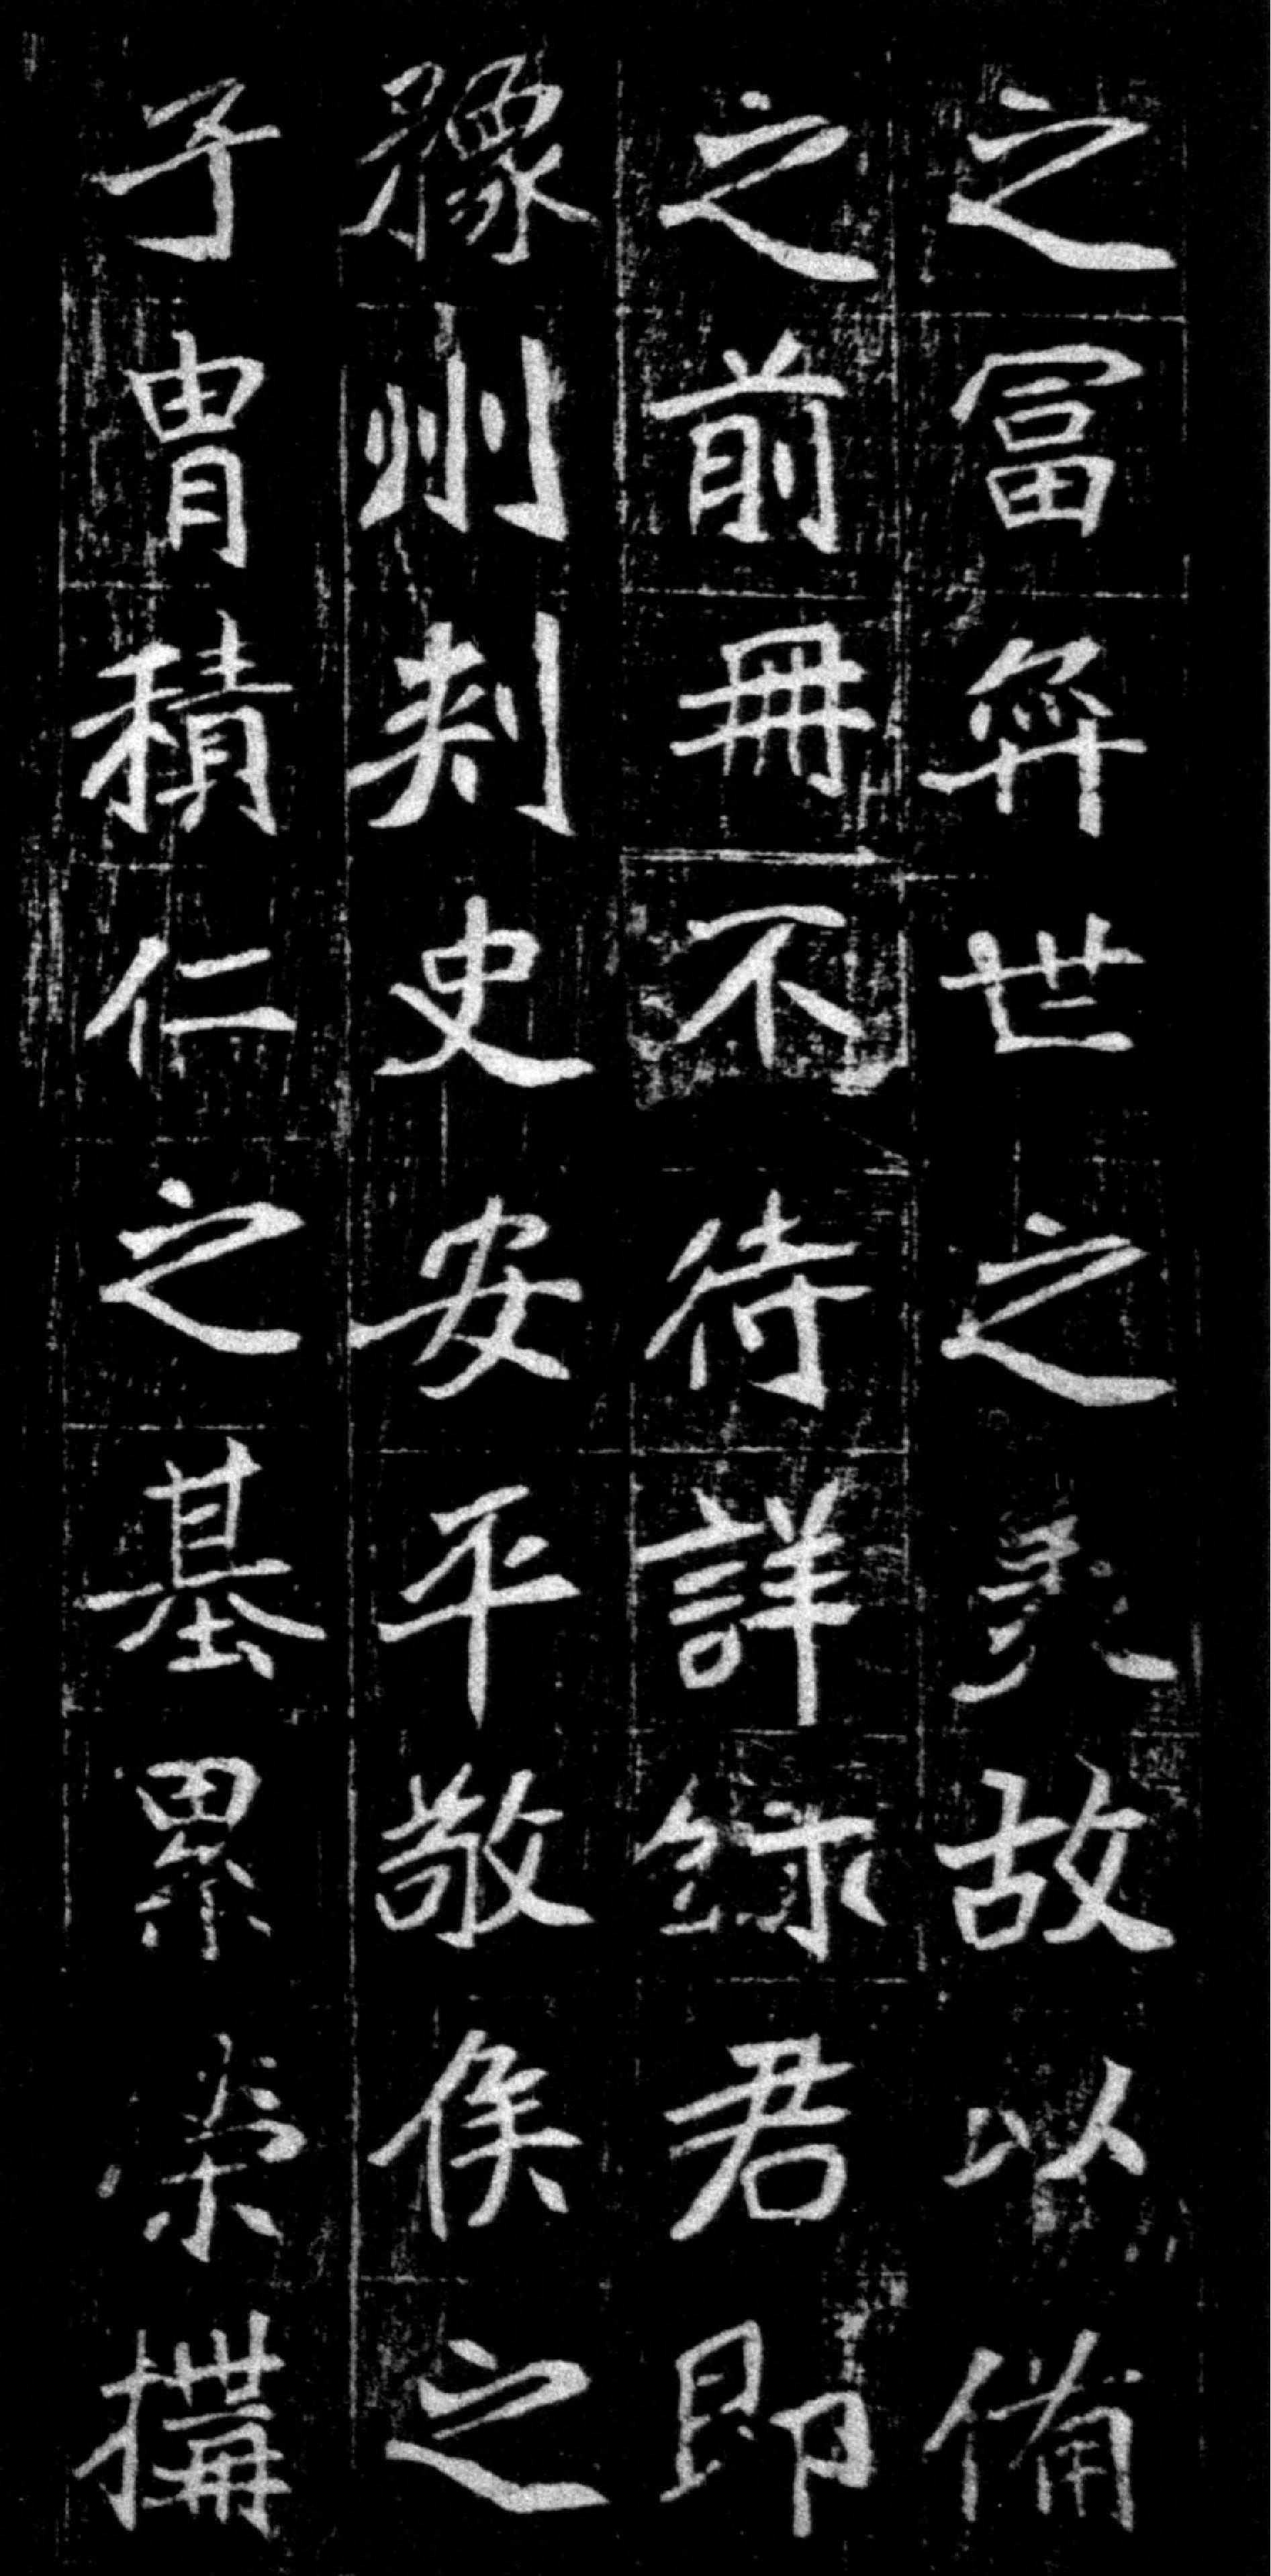 之冨弈世之美故以備
之前冊不待詳録君即
豫州刾史安平敬侯之
子胄積仁之基累榮搆